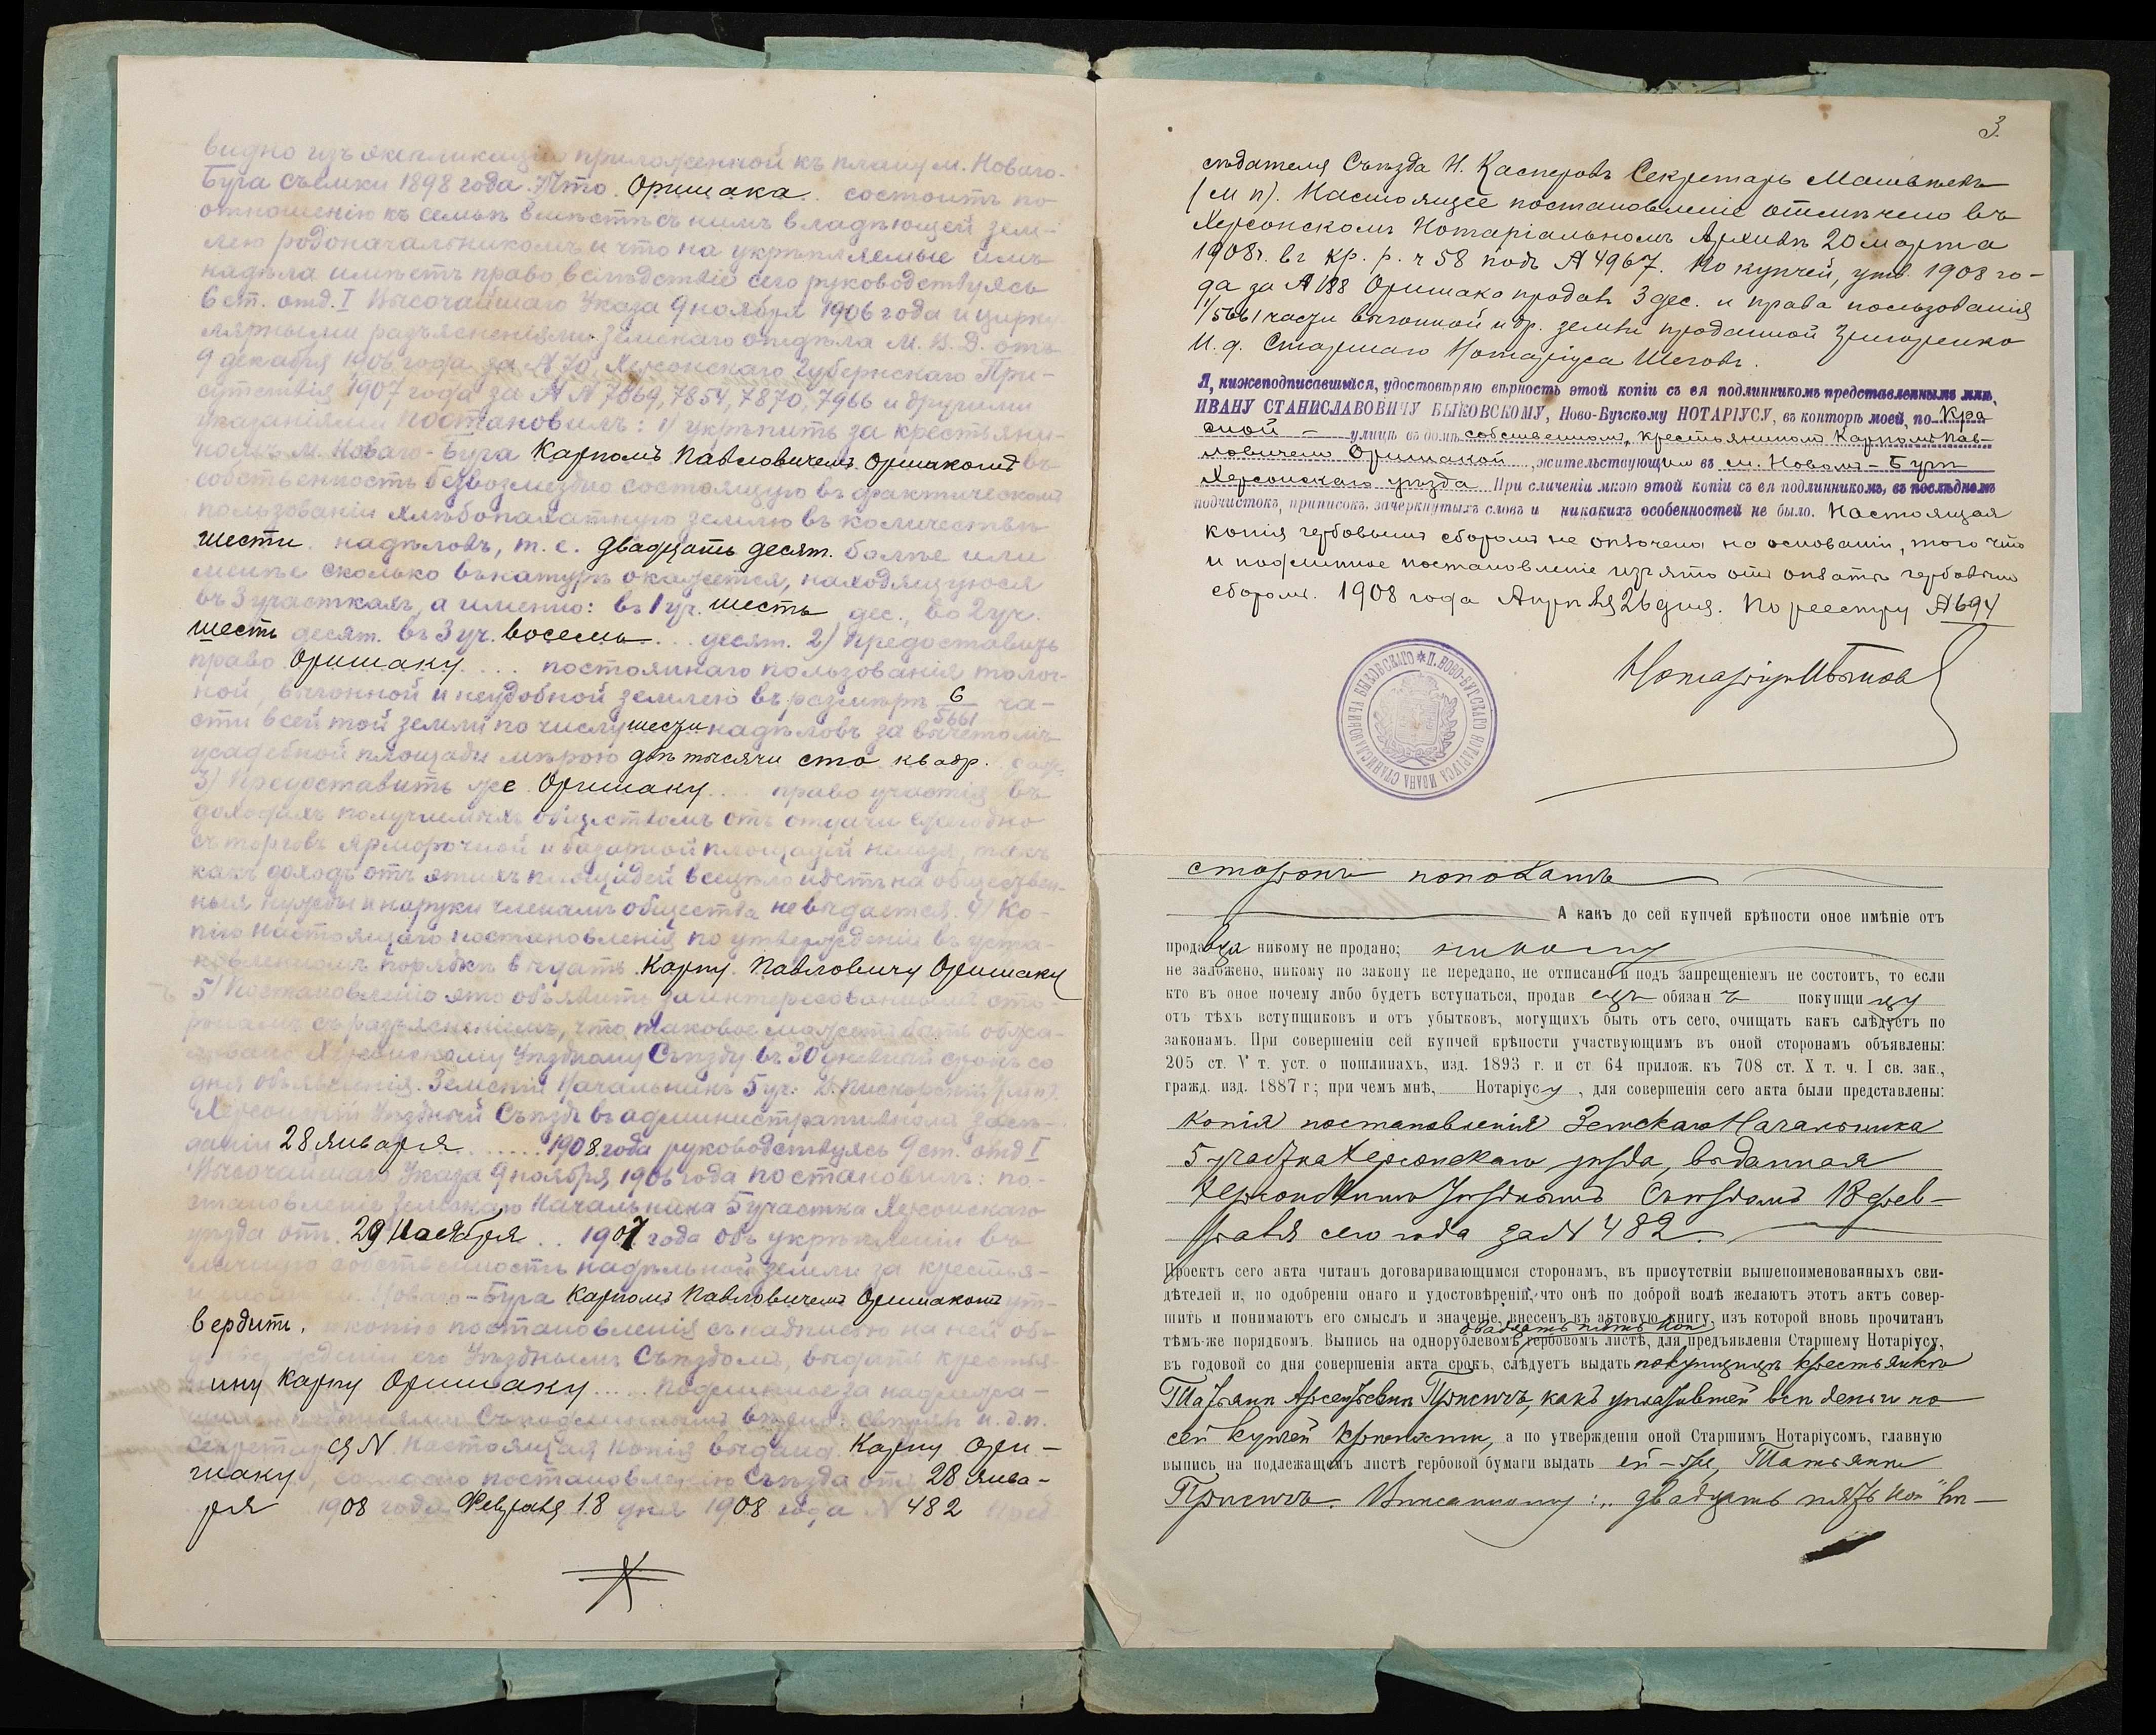 видно изъ экспликаціи приложенной къ плану м. Новаго-
Буга съемки 1898 года. Что Оришака состоитъ по
отношенію къ семьѣ вмѣстѣ съ нимъ владѣющей зем-
лею родоначальникомъ и что на укрѣпляемые имъ
надѣла имѣетъ право вслѣдствіе сего руководствуясь
6 ст. отд. I Высочайшаго Указа 9 ноября 1906 года и цирку
лярными разъясненіями Земскаго отдѣла М. В. Д. отъ
9 декабря 1906 года за № 70, Херсонскаго Губернскаго При-
сутствія 1907 года за №№ 7869, 7854, 7870, 7966 и другими
указаніями постановилъ: 1) укрѣпить за крестьяни-
номъ м. Новаго-Буга Карпомъ Павловичемъ Оришакомъ въ
собственность безвозмездно состоящую въ фактическомъ
пользованіи хлѣбопахатную землю въ количествѣ
шести надѣловъ, т. е. двадцать десят. болѣе или
менѣе сколько въ натурѣ окажется, находящуюся
въ 3 участкахъ, а именно: въ 1 уч. шесть дес., во 2 уч.
шесть десят. въ 3 уч. восемь десят. 2) Предоставить
право Оришаку постояннаго пользованія толоч-
ной, выгонной и неудобной землею въ размѣрѣ 6/5661 ча-
сти всей той земли по числу шести надѣловъ за вычетомъ
усадебной площади мѣрою двѣ тысячи сто квадр. саж.
3) Предоставить же Оришаку право участія въ
доходахъ получаемыхъ обществомъ отъ отдачи ежегодно
съ торговъ ярморочной и базарной площадей нельзя, такъ
какъ доходъ отъ этихъ площадей всецѣло идетъ на обществен-
ныя нужды и на руки членамъ общества не выдается. 4) Ко-
пію настоящаго постановленія по утвержденіи въ уста-
новленномъ порядкѣ выдать Карпу Павловичу Оришаку
5) Постановленіе это объявить заинтересованнымъ сто-
ронамъ съ разъясненіемъ, что таковое можетъ быть обжа-
ловано Херсонскому Уѣздному Съѣзду въ 30 дневный срокъ со
дня объявленія. Земскій Начальникъ 5 уч.: (м п).
Херсонскій Уѣздный Съѣздъ въ административномъ засѣ-
даніи 28 января 1908 года руководствуясь 9 ст. отд I
Высочайшаго Указа 9 ноября 1906 года постановилъ: по-
становленіе Земскаго Начальника 5 участка Херсонскаго
уѣзда отъ 29 Ноября 1907 года объ укрѣпленіи въ
личную собственность надѣльной земли за крестья-
ниномъ м. Новаго-Буга Карпомъ Павловичемъ Оришакомъ ут-
вердить, и копію постановленія съ надписью на ней объ
утвержденіи его Уѣзднымъ Съѣздомъ, выдать крестья-
нину Карпу Оришаку подлинное за надлежа-
щими подписями Съ подлиннымъ вѣрно: скрѣп. и. д. п.
секретаря N Настоящая копія выдана Карпу Ори-
шаку, согласно постановленію Съѣзда отъ 28 Янва-
ря 1908 года Февраля 18 дня 1908 года N 482 Пред
3.
сѣдателя Съѣзда Н. Касперовъ Секретарь
(М п). Настоящее постановленіе отмѣчено въ
Херсонскомъ Нотаріальномъ Архивѣ 20 марта
1908г. въ кр. р. ч 58 подъ № 4967. По купчей, утв. 1908 го-
да за № 188 Оришака продавъ 3 дес. и права пользованія
1/5661 части выгонной и др. земли проданной Григоренко
И. д. Старшаго Нотаріуса Шеговъ.
Я, нижеподписавшійся, удостовѣряю вѣрность этой копіи съ ея подлинникомъ представленнымъ мнѣ,
ИВАНУ СТАНИСЛАВОВИЧУ БЫКОВСКОМУ, Ново-Бугскому НОТАРІУСУ, въ конторѣ моей, по Кра
сной – улицѣ въ домѣ собственномъ, крестьяниномъ Карпомъ Пав-
ловичемъ Оришакой, жительствующимъ въ м. Новомъ-Бугѣ
Херсонскаго уѣзда При сличеніи мною этой копіи съ ея подлинникомъ, въ послѣднемъ
подчистокъ, приписокъ, зачеркнутыхъ словъ и никакихъ особенностей не было. Настоящая
копія гербовымъ сборомъ не оплочена на основаніи, того что
и подлинное постановленіе изъято отъ оплаты гербовымъ
сборомъ. 1908 года Апрѣля 26 дня. По реестру № 694
Нотаріусъ
* П. НОВО-БУГСКАГО НОТАРІУСА ИВАНА СТАНИСЛАВОВИЧА БЫКОВСКАГО
сторонъ пополамъ
А какъ до сей купчей крѣпости оное имѣніе отъ
продавца никому не продано; никому
не заложено, никому по закону не передано, не отписано и подъ запрещеніемъ не состоитъ, то если
кто въ оное почему либо будетъ вступаться, продавецъ обязанъ покупщицу
отъ тѣхъ вступщиковъ и отъ убытковъ, могущихъ быть отъ сего, очищать какъ слѣдуетъ по
законамъ. При совершеніи сей купчей крѣпости участвующимъ въ оной сторонамъ объявлены:
205 ст. V т. уст. о пошлинахъ, изд. 1893 г. и ст 64 прилож. къ 708 ст. X т. ч. I св. зак.,
гражд. изд. 1887 г; при чемъ мнѣ, Нотаріусу, для совершенія сего акта были представлены:
копія постановленія Земскаго Начальника
5 участка Херсонскаго уѣзда, выданная
Херсонскимъ Уѣзднымъ Съѣздомъ 18 фев-
раля сего года за № 482.
Проектъ сего акта читанъ договаривающимся сторонамъ, въ присутствіи вышепоименованныхъ сви-
дѣтелей и, по одобреніи онаго и удостовѣреніи, что онѣ по доброй волѣ желаютъ этотъ актъ совер-
шить и понимаютъ его смыслъ и значеніе, внесенъ въ актовую книгу, изъ которой вновь прочитанъ
двадцать пять коп
тѣмъ-же порядкомъ. Выпись на однорублевомъ гербовомъ листѣ, для предъявленія Старшему Нотаріусу,
въ годовой со дня совершенія акта срокъ, слѣдуетъ выдать покупщицѣ крестьянкѣ
Татьянѣ Арсентьевнѣ какъ уплатившей всѣ деньги по
сей купчей крѣпости, а по утвержденіи оной Старшимъ Нотаріусомъ, главную
выпись на подлежащемъ листѣ гербовой бумаги выдать ей-же, Татьянѣ
Вписанному: „двадцать пять коп" вѣ-